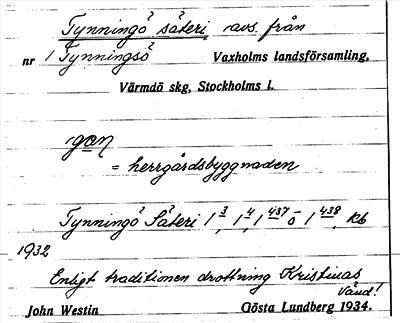 Tynningö säteri avs. från
nr 1 Tynningsö Vaxholms landsförsamling,
Värmdö skg, Stockholms l.
gan
= herrgårdsbyggnaden
Tynningö Säteri 1 3, 1 4, 1 437 o 1 438, kb
1932
Enligt traditionen drottning Kristinas
Vänd!
John Westin Gösta Lundberg 1934.